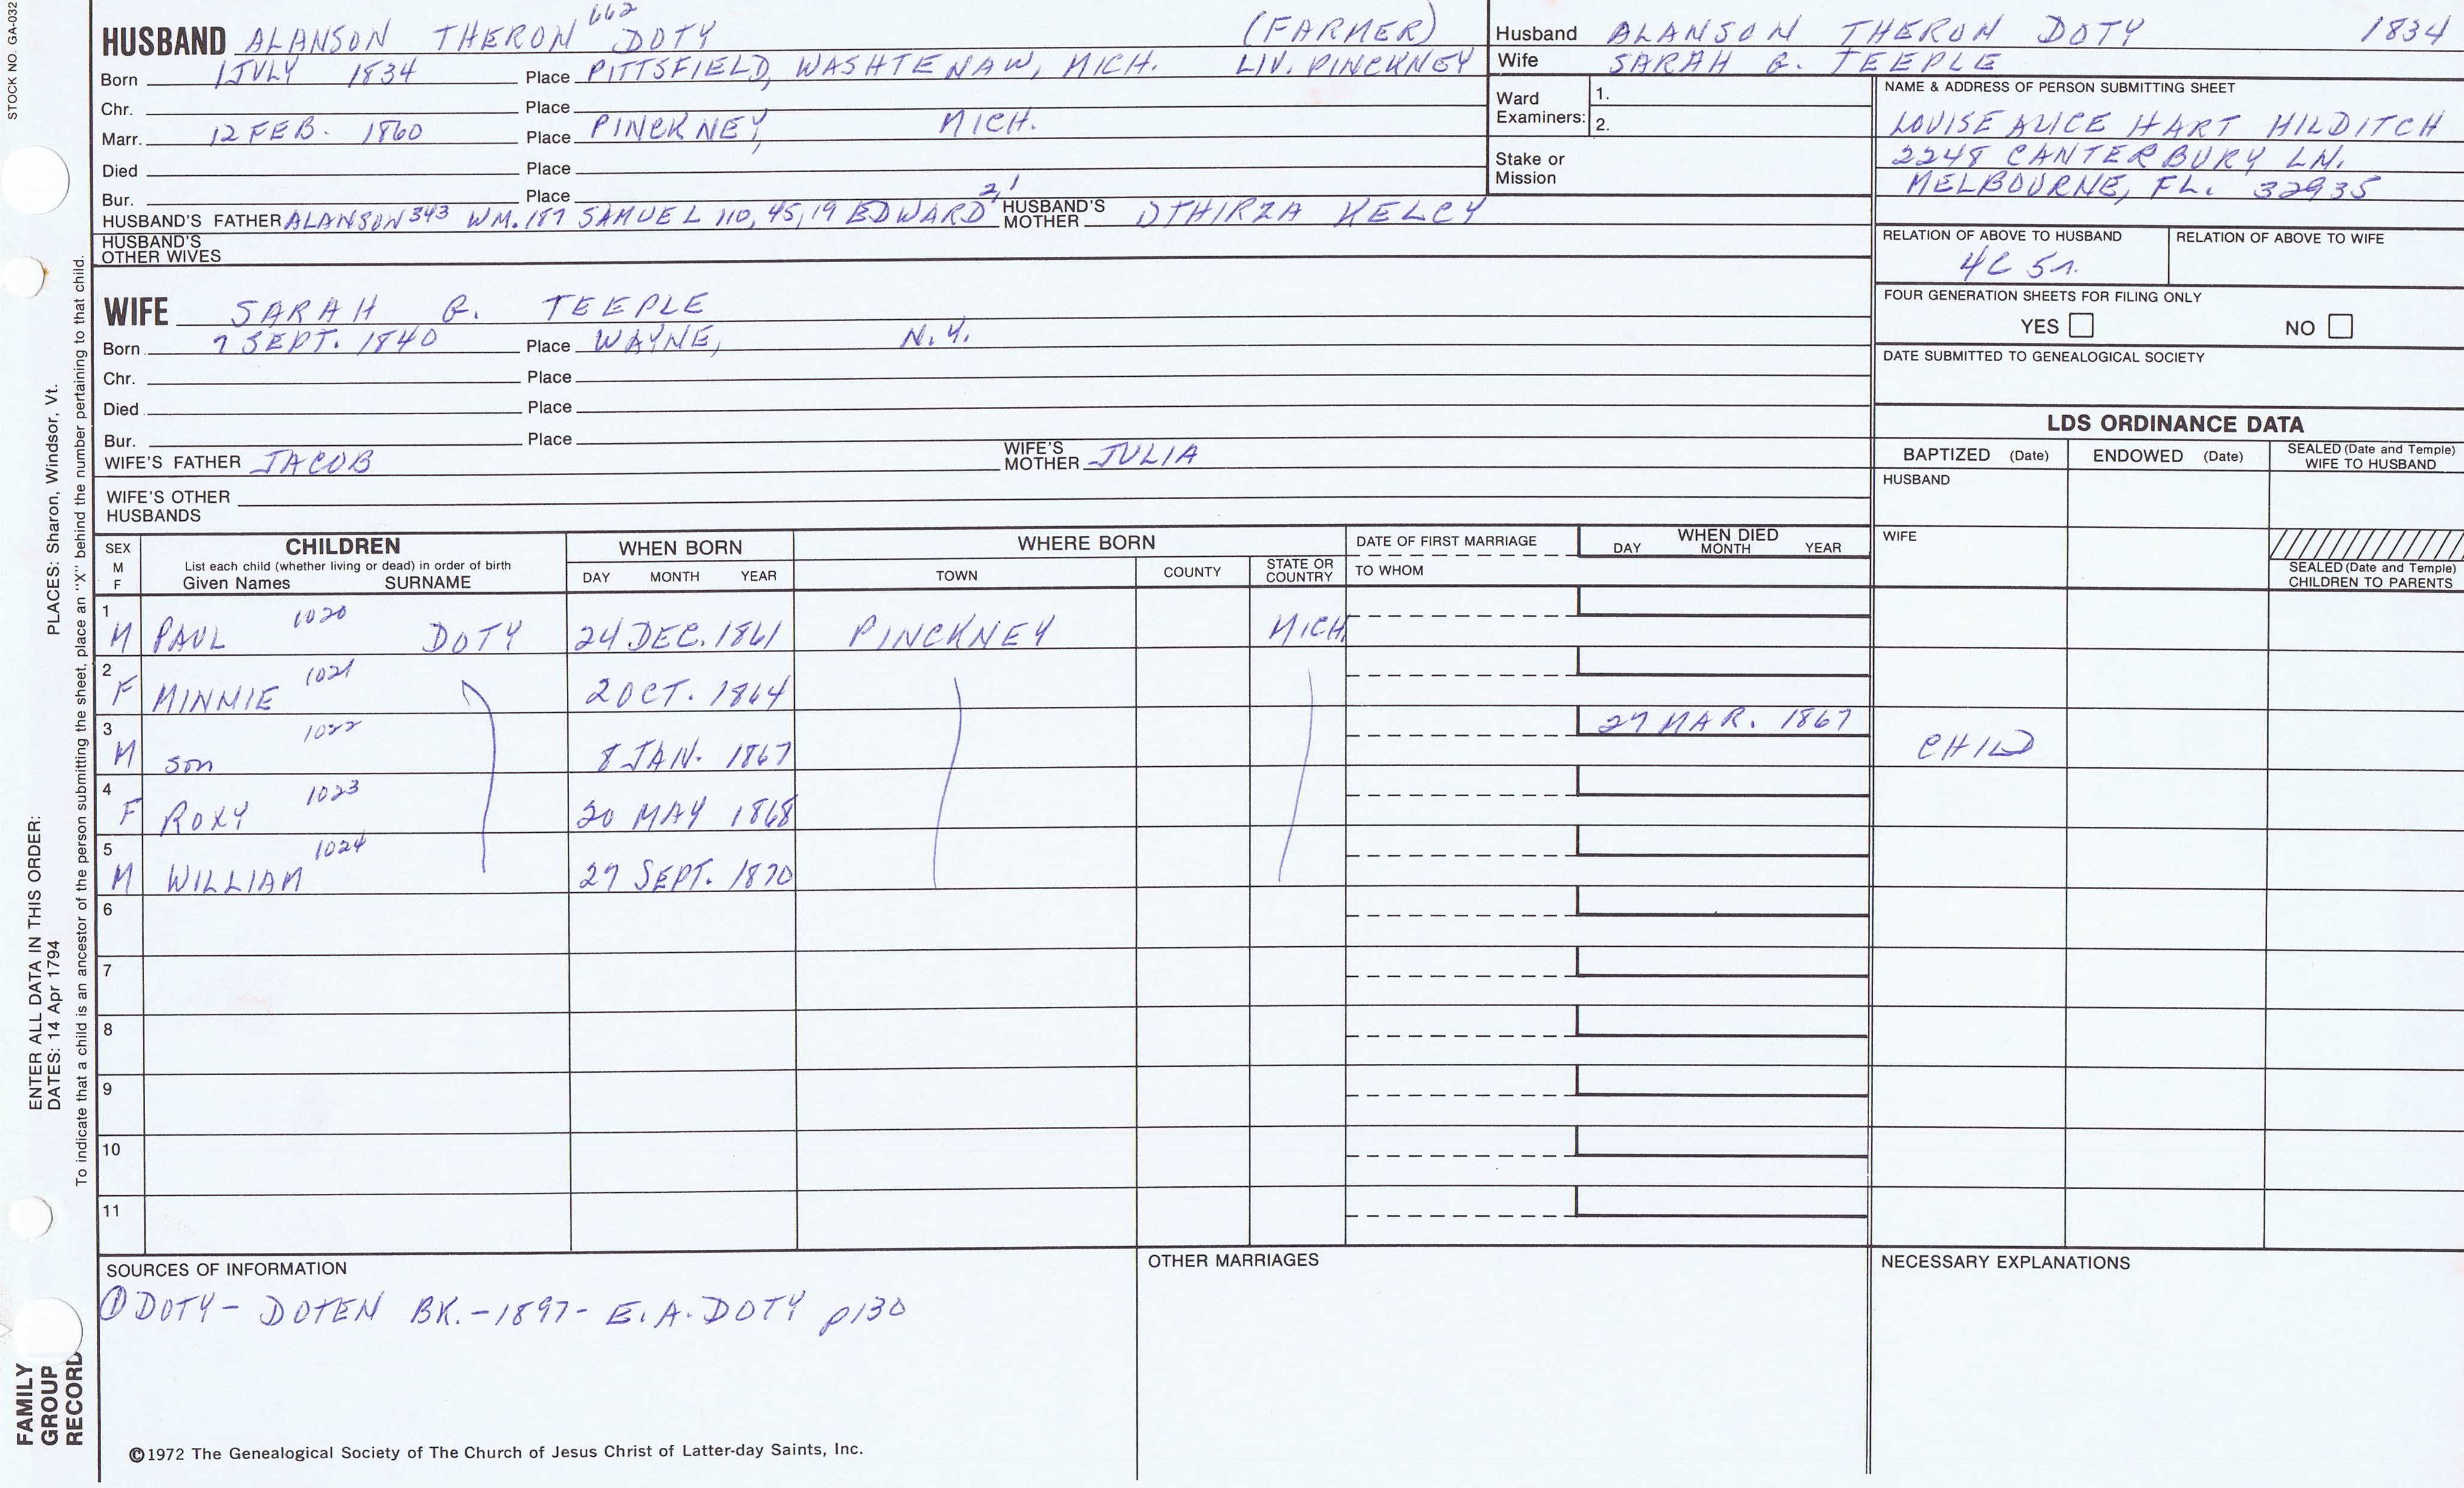 STOCK NO. GA-032
HUSBAND ALANSON THERON 662 DOTY (FARMER)
Born 1 JULY 1834 Place PITTSFIELD, WASHTENAW, MICH. LIV. PINCKNEY
Chr. Place
Marr. 12 FEB. 1860 Place PINCKNEY, MICH.
Died Place
Bur. Place
HUSBAND'S FATHER ALANSON 343 WM. 187 SAMUEL 110, 45, 19 EDWARD 2, 1 HUSBAND'S MOTHER DTHIRZA KELCY
HUSBAND'S OTHER WIVES
Husband ALANSON THERON DOTY 1834
Wife SARAH G. TEEPLE
Ward Examiners: 1.
2.
Stake or Mission
NAME & ADDRESS OF PERSON SUBMITTING SHEET
LOUISE ALICE HART HILDITCH
2248 CANTERBURY LN.
MELBOURNE, FL. 32935
RELATION OF ABOVE TO HUSBAND RELATION OF ABOVE TO WIFE
4C 5r.
FOUR GENERATION SHEETS FOR FILING ONLY
YES NO
DATE SUBMITTED TO GENEALOGICAL SOCIETY
WIFE SARAH G. TEEPLE
Born 7 SEPT. 1840 Place WAYNE, N.Y.
Chr. Place
Died Place
Bur. Place
WIFE'S FATHER JACOB WIFE'S MOTHER JULIA
WIFE'S OTHER HUSBANDS
LDS ORDINANCE DATA
BAPTIZED (Date) ENDOWED (Date) SEALED (Date and Temple) WIFE TO HUSBAND
HUSBAND
WIFE
SEALED (Date and Temple) CHILDREN TO PARENTS
SEX M F CHILDREN List each child (whether living or dead) in order of birth Given Names SURNAME
WHEN BORN DAY MONTH YEAR
WHERE BORN TOWN COUNTY STATE OR COUNTRY
DATE OF FIRST MARRIAGE TO WHOM
WHEN DIED DAY MONTH YEAR
1 M PAUL 1020 DOTY 24 DEC. 1861 PINCKNEY MICH
2 F MINNIE 1021 2 OCT. 1864
3 M son 1022 8 JAN. 1867 27 MAR. 1867 CHILD
4 F ROXY 1023 20 MAY 1868
5 M WILLIAM 1024 27 SEPT. 1870
6
7
8
9
10
11
SOURCES OF INFORMATION
① DOTY - DOTEN BK. - 1897 - E. A. DOTY p130
OTHER MARRIAGES
NECESSARY EXPLANATIONS
©1972 The Genealogical Society of The Church of Jesus Christ of Latter-day Saints, Inc.
FAMILY GROUP RECORD
ENTER ALL DATA IN THIS ORDER:
DATES: 14 Apr 1794 PLACES: Sharon, Windsor, Vt.
To indicate that a child is an ancestor of the person submitting the sheet, place an "X" behind the number pertaining to that child.